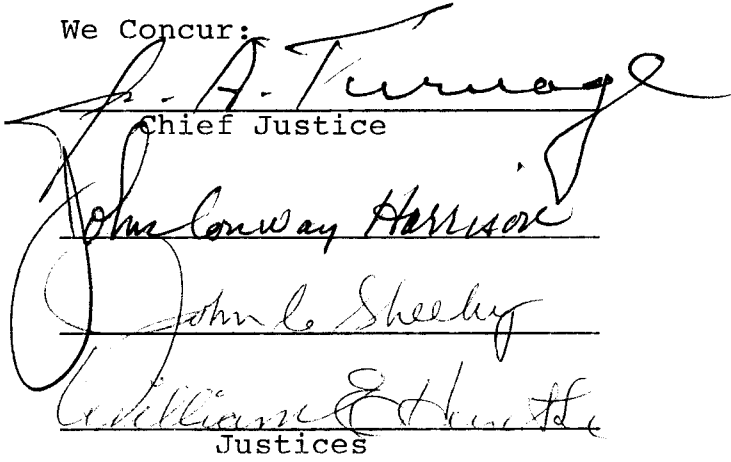 We Concur:
J. A. Turnage
Chief Justice
John Conway Harrison
John C Sheehy
William E Hunt Sr
Justices